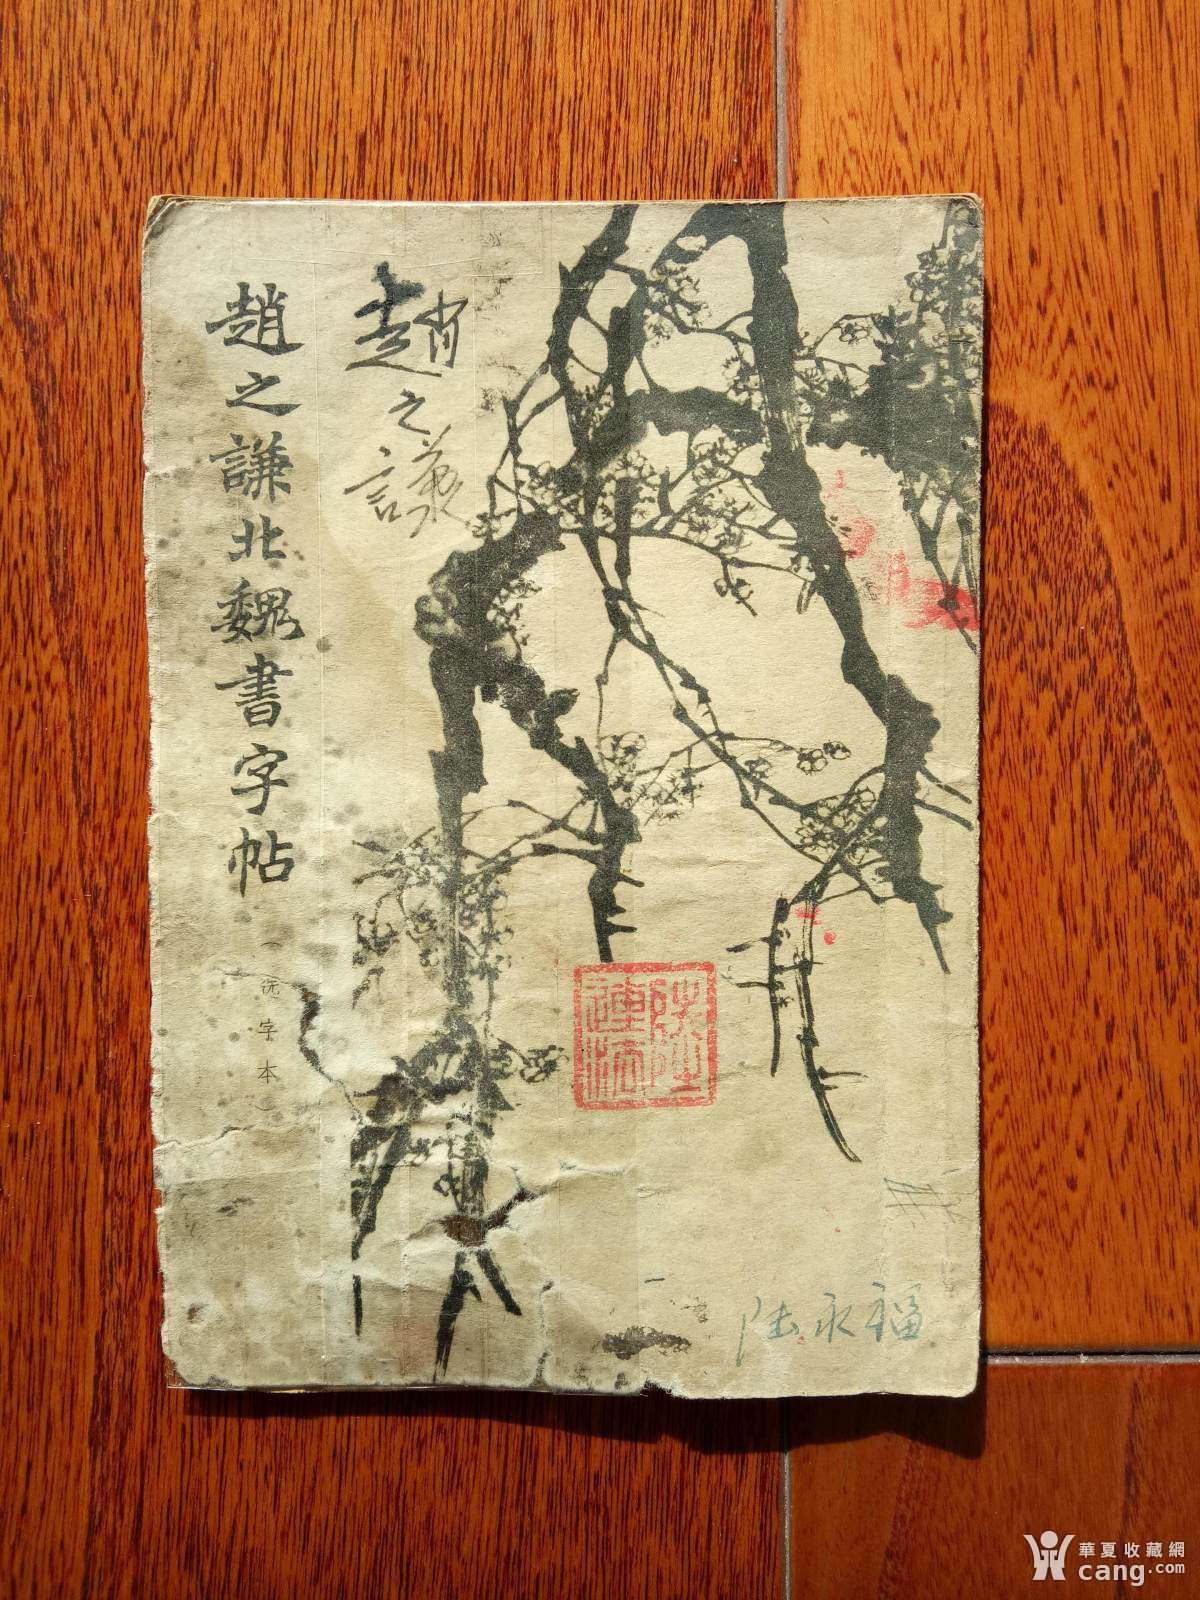 趙之謙北魏書字帖
（选字本）
趙之謙
陆永福
華夏收藏網
cang.com